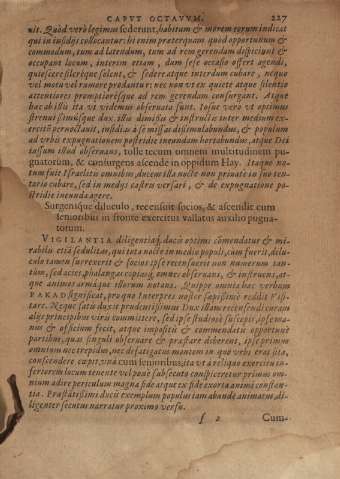 CAPVT OCTAVVM. 227
nit. Quòd verò legimus sederunt, habitum & morem eorum indicat
qui in insidijs collocantur: hi enim præterquam quod opportunum &
commodum, tum ad latendum, tum ad rem gerendam dispiciunt &
occupant locum, interim etiam, dum sese occasio offert agendi,
quiescere silereque solent, & sedere atque interdum cubare, neque
vel motu vel rumore prodantur: nec non vt ex quiete atque silentio
attentiores promptioresque ad rem gerendam consurgant. Atque
hæc ab illis ita vt videmus obseruata sunt. Iosue verò vt optimus
strenuissimusque dux, illis dimissis & instructis inter medium ex-
ercitū pernoctauit, insidias à se missas dissimulabundus, & populum
ad vrbis expugnationem postridie ineundam hortabundus, atque Dei
iussum illud obseruans, tolle tecum omnem multitudinem pu-
gnatorum, & consurgens ascende in oppidum Hay. Itaque no-
tum fuit Israelitis omnibus, ducem illa nocte non priuato in suo ten-
torio cubare, sed in medijs castris versari, & de expugnatione po-
stridie ineunda agere.
Surgensque diluculo, recensuit socios, & ascendit cum
senioribus in fronte exercitus vallatus auxilio pugna-
torum.
VIGILANTIA diligentiaq́; ducis optimi cōmendatur & mi-
rabilis etiā sedulitas, qui tota nocte in medio populi, cum fuerit, dilu-
culo tamen surrexerit & socios ipse recensuerit non numerum tan-
tùm, sed acies, phalangas copiasq́; omnes obseruans, & instruens, at-
que animos armaque illorum notans. Quippe omnia hæc verbum
PAKAD significat, pro quo Interpres noster sæpissimè reddit Visi-
tare. Neque satis duxit prudentissimus Dux illam recensendi curam
alijs principibus viris committere, sed ipse studuit suscepit, ipse ma-
nus & officium fecit, atque impositū & commendatū opportunè
partibus, quas singuli obseruare & præstare diberent, ipse primus
omnium nec trepidus, nec defatigatus montem in quo vrbs erat sita,
conscendere cœpit, vnà cum senioribus, ita vt à reliquo exercitu in-
feriorem locum tenente vel pone subsecuto conspiceretur primus om-
nium adire periculum magna fide atque ex fide exorta animi constan-
tia. Præstātissimi ducis exemplum populus iam abundè animatus, di-
ligenter secutus narratur proximo versu.
f 2 Cum-